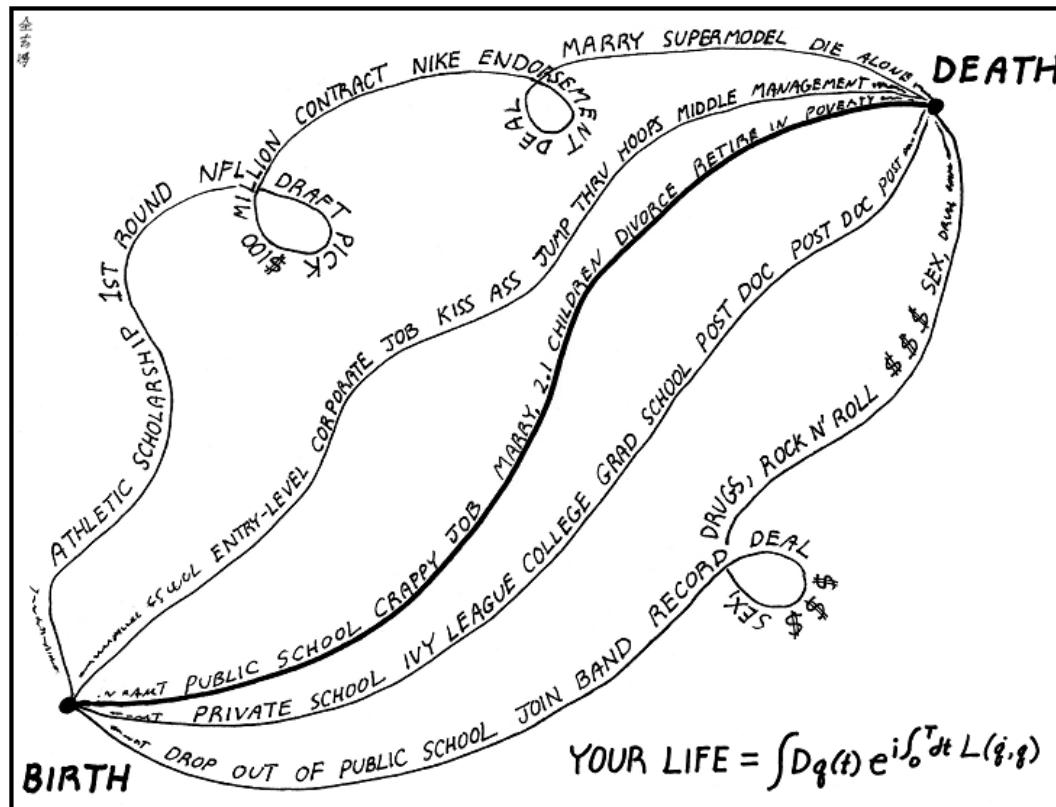 全吉得
DEATH
ATHLETIC SCHOLARSHIP 1ST ROUND NFL DRAFT PICK $100 MILLION CONTRACT NIKE ENDORSEMENT DEAL MARRY SUPERMODEL DIE ALONE
ENTRY-LEVEL CORPORATE JOB KISS ASS JUMP THRU HOOPS MIDDLE MANAGEMENT
PUBLIC SCHOOL CRAPPY JOB MARRY, 2.1 CHILDREN DIVORCE RETIRE IN POVERTY
PRIVATE SCHOOL IVY LEAGUE COLLEGE GRAD SCHOOL POST DOC POST DOC POST
DROP OUT OF PUBLIC SCHOOL JOIN BAND RECORD DEAL $ $ $ SEX! DRUGS, ROCK N' ROLL $ $ $ SEX, DRUGS
BIRTH
YOUR LIFE = ∫Dq(t) e^{i∫₀ᵀdt L(q̇,q)}